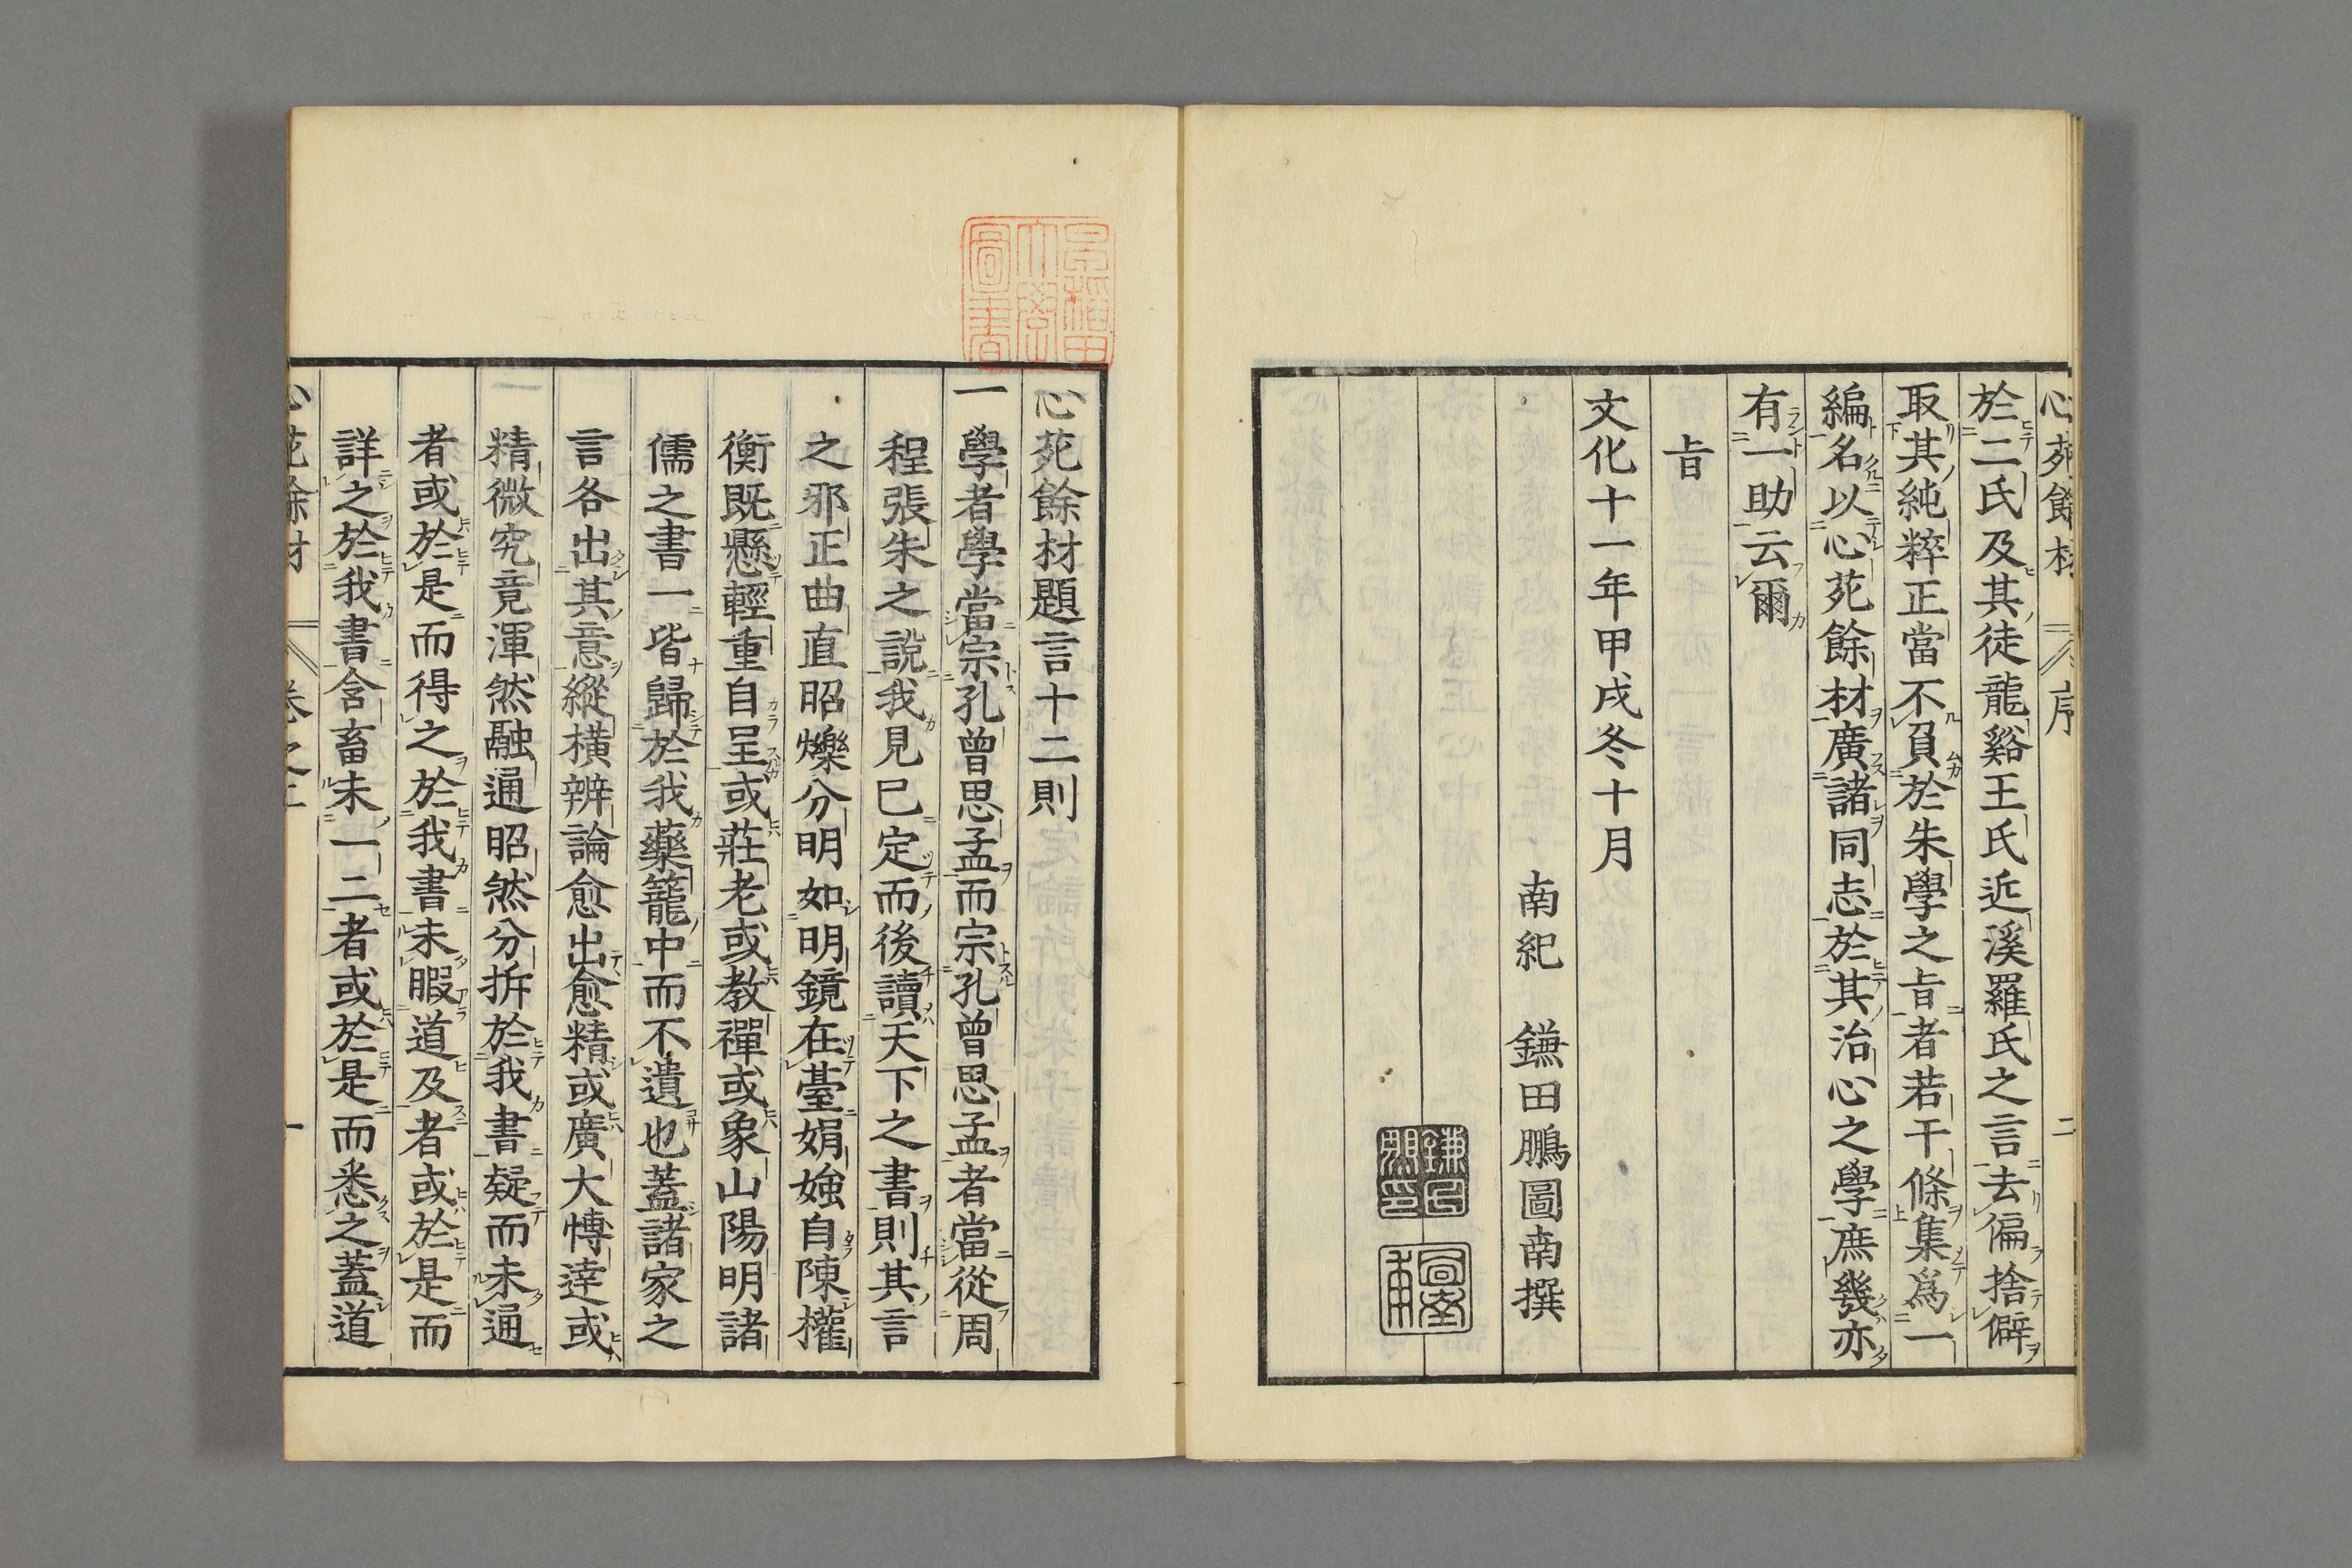 心苑餘材 序 二
於二氏及其徒龍谿王氏近溪羅氏之言去偏捨僻
取其純粹正當不負於朱學之㫖者若干條集爲一
編名以心苑餘材廣諸同志於其治心之學庶幾亦
有一助云爾
㫖
文化十一年甲戌冬十月
南紀 鎌田鵬圖南撰
心苑餘材題言十二則
一學者學當宗孔曾思孟而宗孔曾思孟者當從周
程張朱之說我見已定而後讀天下之書則其言
之邪正曲直昭爍分明如明鏡在臺娟媸自陳權
衡既懸輕重自呈或莊老或教禪或象山陽明諸
儒之書一皆歸於我藥籠中而不遺也蓋諸家之
言各出其意縱橫辨論愈出愈精或廣大慱達或
精微究竟渾然融通昭然分拆於我書疑而未通
者或於是而得之於我書未暇道及者或於是而
詳之於我書含畜未一二者或於是而悉之蓋道
心苑餘材 卷之上 一